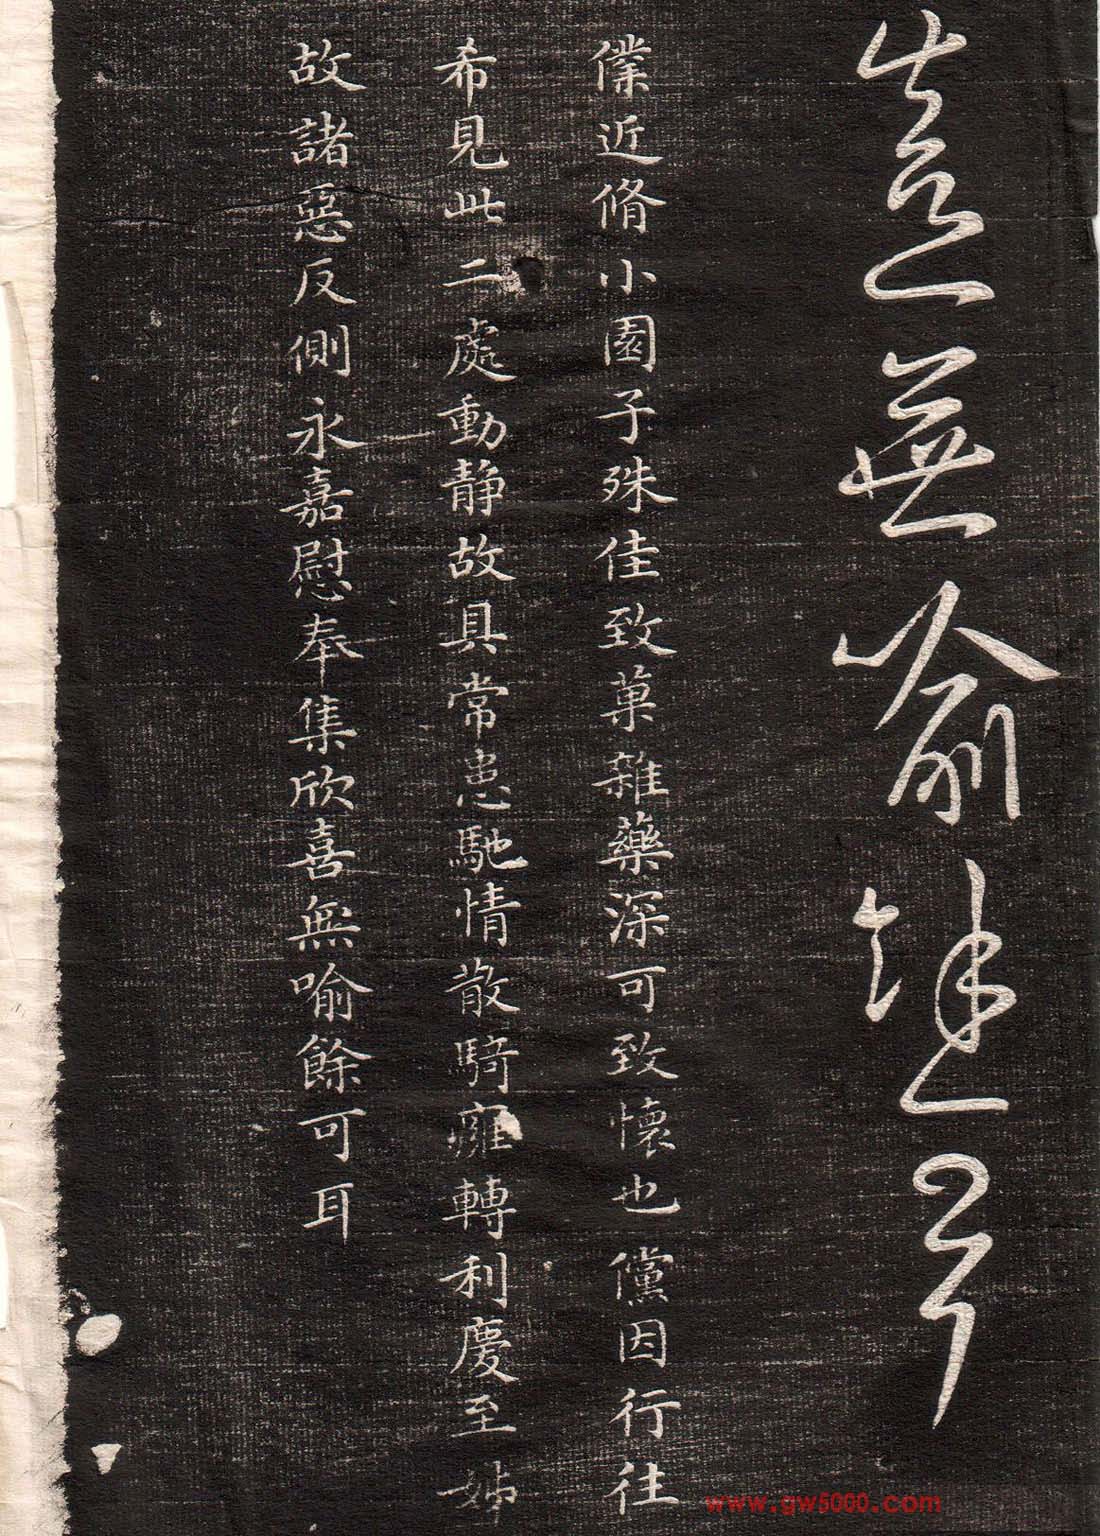 喜無喻餘可耳
僕近脩小園子殊佳致菓雜藥深可致懷也儻因行往
希見此二處動静故具常患馳情散騎癰轉利慶至姊
故諸惡反側永嘉慰奉集欣喜無喻餘可耳
www.gw5000.com